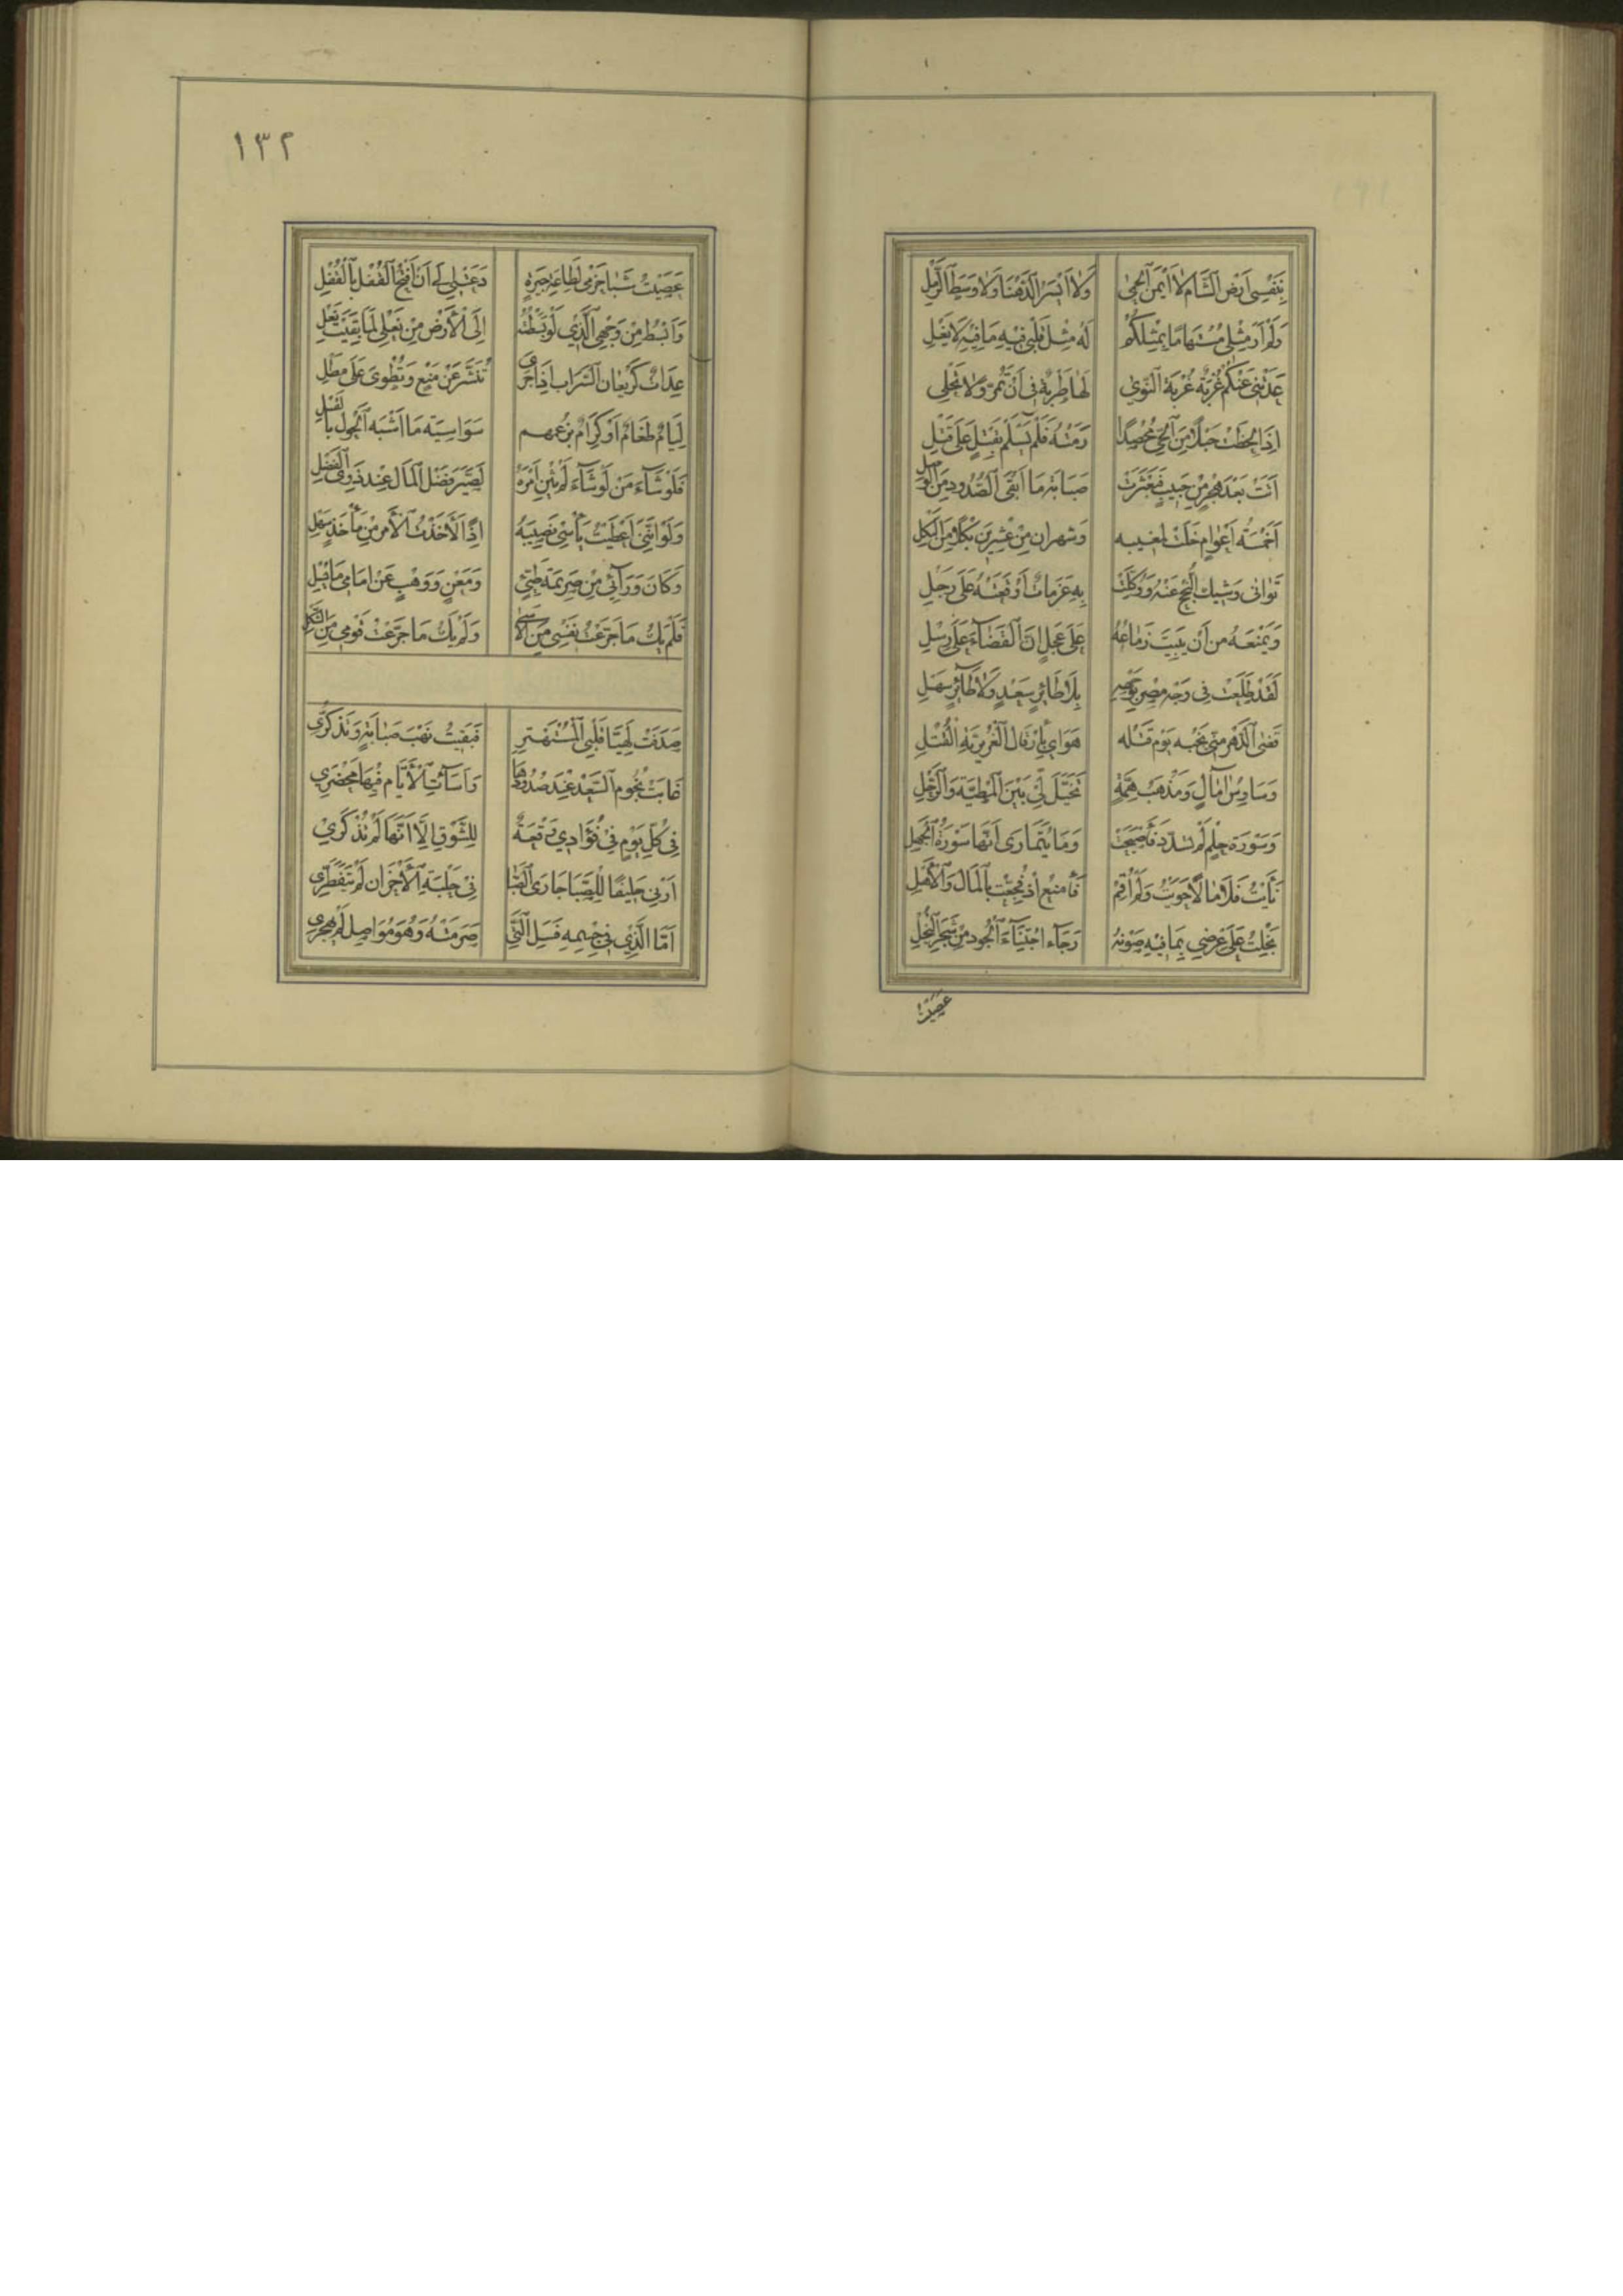 بِنَفْسِي اَرْضَ الشَّامِ لَا اَيْمَنَ الْحِمٰى وَلَا اَيْسَرَ الدَّهْنَا وَلَا وَسَطَ الرَّمْلِ
وَلَمْ اَرَ مِثْلِي مُسْتَهَامًا بِمِثْلِكُمْ لَهُ مِثْلُ قَلْبِي فِيهِ مَا فِيهِ لَا يَغْلِي
عَدَتْنِي عَنْكُمْ غُرْبَةً غُرْبَةُ النَّوٰى لَهَا طَرْبَةٌ فِي اَنْ تُمِرَّ وَلَا تُحْلِي
اِذَا لَحَظَتْ حَبْلًا مِنَ الْحَيِّ مُحْصَدًا رَمَتْهُ فَلَمْ يَسْلَمْ بِقَتْلٍ عَلَى قَتْلِ
اَتَتْ بَعْدَ هَجْرٍ مِنْ حَبِيبٍ فَعَثَرَتْ صَبَابَةَ مَا اَبْقَى الصُّدُودُ مِنَ الْوَصْلِ
اَخَمْسَةُ اَعْوَامٍ خَلَتْ لِمَغِيبِهِ وَشَهْرَانِ مِنْ عِشْرِينَ ثُكْلًا مِنَ الثُّكْلِ
تَوَانٰى وَشِيكُ النُّجْحِ عَنْهُ وَوُكِّلَتْ بِهِ عَزَمَاتٌ اَوْقَفَتْهُ عَلَى رِجْلِ
وَيَمْنَعُهُ مِنْ اَنْ يَبِيتَ زَمَاعُهُ عَلَى عَجَلٍ اِنَّ الْقَضَاءَ عَلَى رِسْلِ
لَقَدْ طَلَعَتْ فِي وَجْهِ مِصْرَ بِوَجْهِهِ بِلَا طَائِرٍ سَعْدٍ وَلَا طَائِرٍ سَهْلِ
قَضَى الدَّهْرُ مِنِّي نَحْبَهُ يَوْمَ قَتْلِهِ هَوَايَ بِاِرْقَالِ الْغُرَيْرِيَّةِ الْفُتْلِ
وَسَاوِسُ اٰمَالٍ وَمَذْهَبُ هِمَّةٍ تَخَيَّلَ لِي بَيْنَ الْمَطِيَّةِ وَالرَّحْلِ
وَسَوْرَةُ حِلْمٍ لَمْ تُسَدَّدْ فَاَصْبَحَتْ وَمَا يُتَمَارَى اَنَّهَا سَوْرَةُ الْجَهْلِ
نَاَيْتُ فَلَا مَالًا حَوَيْتُ وَلَمْ اُقِمْ فَاَمْتِعْ اِذْ فُجِعْتُ بِالْمَالِ وَالْاَهْلِ
بَخِلْتُ عَلَى عِرْضِي بِمَا فِيهِ صَوْنُهُ رَجَاءَ اجْتِنَاءِ الْجُودِ مِنْ شَجَرِ الْبُخْلِ
عصيت
١٣٢
عَصَيْتُ شَبَا حَزْمِي لِطَاعَةِ حَيْرَةٍ دَعَتْنِي اِلَى اَنْ اَفْتَحَ الْقُفْلَ بِالْقُفْلِ
وَاَبْسُطُ مِنْ وَجْهِي الَّذِي لَوْ بَسَطْتُهُ اِلَى الْاَرْضِ مِنْ نَعْلِي لَمَا بَقِيَتْ نَعْلِي
عِدَاتٌ كَرَيْعَانِ السَّرَابِ اِذَا جَرَى تُنَشَّرُ عَنْ مَنْعٍ وَتُطْوَى عَلَى مَطْلِ
لِئَامٌ طَغَامٌ اَوْ كِرَامٌ بِزَعْمِهِم سَوَاسِيَةٌ مَا اَشْبَهَ الْحُولَ بِالْقُبْلِ
فَلَوْ شَاءَ مَنْ لَوْ شَاءَ لَمْ يُثْنِ اَمْرَهُ لَصَيَّرَ فَضْلَ الْمَالِ عِنْدَ ذَوِي الْفَضْلِ
وَلَوْ اَنَّنِي اَعْطَيْتُ يَاْسِي نَصِيبَهُ اِذًا لَاَخَذْتُ الْاَمْرَ مِنْ مَاْخَذٍ سَهْلِ
وَكَانَ وَرَائِي مِنْ صَرِيمَةِ طَيِّئٍ وَمَعْنٍ وَوَهْبٍ عَنْ اَمَامِي مَا يُسْلِي
فَلَمْ يَكُ مَا جَرَّعْتُ نَفْسِي مِنَ الْاَسٰى وَلَمْ يَكُ مَا جَرَّعْتُ قَوْمِي مِنَ الثُّكْلِ
صَدَفَتْ لُهَيَّا قَلْبِي الْمُسْتَهْتَرِ فَبَقِيتُ نَهْبَ صَبَابَةٍ وَتَذَكُّرِي
غَابَتْ نُجُومُ السَّعْدِ عِنْدَ صُدُودِهَا وَاَسَاءَتِ الْاَيَّامُ فِيهَا مَحْضَرِي
فِي كُلِّ يَوْمٍ فِي فُؤَادِي وَقْعَةٌ لِلشَّوْقِ اِلَّا اَنَّهَا لَمْ تُذْكَرِي
اَرِنِي حَلِيفًا لِلصِّبَا جَارَى الصَّبَا فِي حَلْبَةِ الْاَحْزَانِ لَمْ يَتَفَطَّرِي
اَمَّا الَّذِي فِي جِسْمِهِ فَسَلِ الَّتِي صَرَمَتْهُ وَهْوَ مُوَاصِلٌ لَمْ يَهْجُرِي